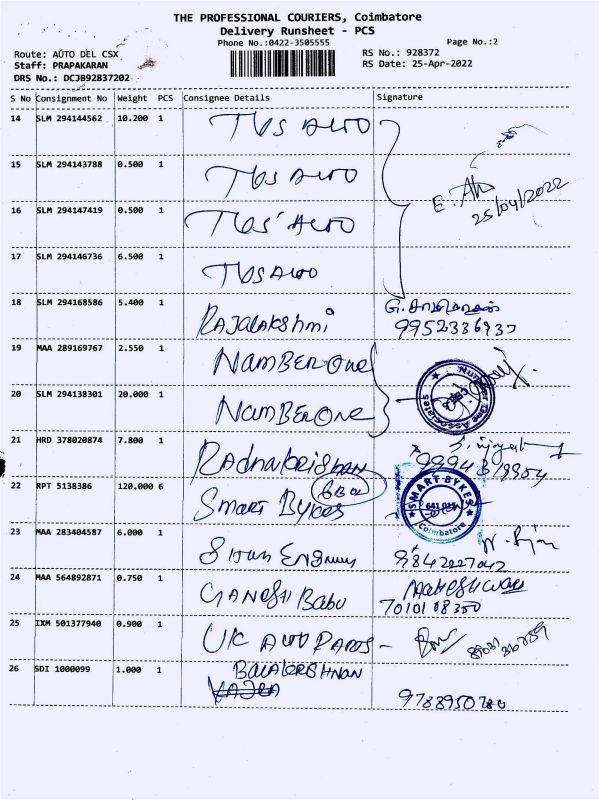 THE PROFESSIONAL COURIERS, Coimbatore
Delivery Runsheet - PCS
Phone No.:0422-3505555 Page No.:2
Route: AUTO DEL CSX RS No.: 928372
Staff: PRAPAKARAN RS Date: 25-Apr-2022
DRS No.: DCJB92837202
S No Consignment No Weight PCS Consignee Details Signature
14 SLM 294144562 10.200 1 TVS AUTO
15 SLM 294143788 0.500 1 TVS AUTO
E. 25/04/2022
16 SLM 294147419 0.500 1 TVS AUTO
17 SLM 294146736 6.500 1 TVS AUTO
18 SLM 294168586 5.400 1 RAJALAKSHMI G.
19 MAA 289169767 2.550 1 NAMBER ONE
Number One Associates
20 SLM 294138301 20.000 1 NAMBER ONE
21 HRD 378020874 7.800 1 RADHAKRISHNAN
22 RPT 5138386 120.000 6 Smart Bykes 6 Box
SMART BYKES
Coimbatore
23 MAA 283404587 6.000 1 9842227042
24 MAA 564892871 0.750 1 GANESH Babu MAHESHWARI
7010108350
25 IXM 501377940 0.900 1 UK AUTO PARTS -
26 SDI 1000099 1.000 1 BALAKRISHNAN
9788950780